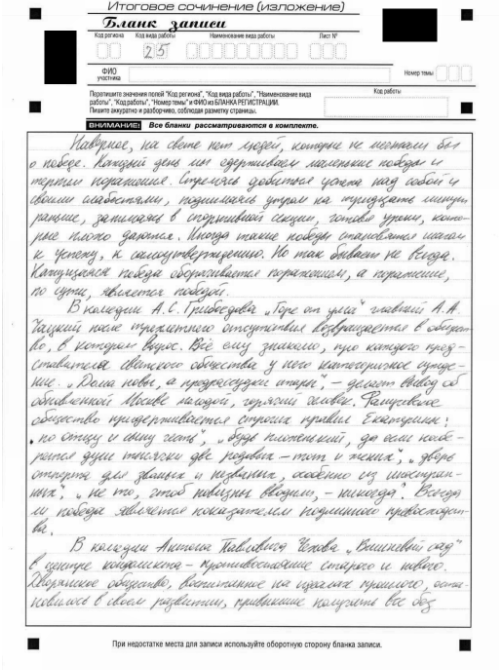 Итоговое сочинение (изложение)
Бланк записи
Код региона Код вида работы Наименование вида работы Лист №
25
ФИО участника Номер темы
Перепишите значения полей "Код региона", "Код вида работы", "Наименование вида
работы", "Код работы", "Номер темы" и ФИО из БЛАНКА РЕГИСТРАЦИИ.
Пишите аккуратно и разборчиво, соблюдая разметку страницы.
Код работы
ВНИМАНИЕ! Все бланки рассматриваются в комплекте.
Наверное, на свете нет людей, которые не мечтали бы
о победе. Каждый день мы одерживаем маленькие победы и
терпим поражения. Стремясь добиться успеха над собой и
своими слабостями, поднимаясь утром на тридцать минут
раньше, занимаясь в спортивной секции, готовя уроки, кото-
рые плохо даются. Иногда такие победы становятся шагом
к успеху, к самоутверждению. Но так бывает не всегда.
Кажущаяся победа оборачивается поражением, а поражение,
по сути, является победой.
В комедии А.С. Грибоедова „Горе от ума" главный А.А.
Чацкий после трехлетнего отсутствия возвращается в общест-
во, в котором вырос. Всё ему знакомо, про каждого пред-
ставителя светского общества у него категоричное сужде-
ние. „Дома новы, а предрассудки стары", – делает вывод об
обновленной Москве молодой, горячий человек. Фамусовское
общество придерживается строгих правил Екатерины:
„по отцу и сыну честь", „будь плохенький, да если набе-
рется душ тысячки две родовых – тот и жених", „дверь
отперта для званых и незваных, особенно из иностран-
ных", „не то, чтоб новизны вводили, – никогда". Всегда
ли победа является показателем подлинного превосходст-
ва.
В комедии Антона Павловича Чехова „Вишневый сад"
в центре конфликта – противостояние старого и нового.
Дворянское общество, воспитанное на идеалах прошлого, оста-
новилось в своем развитии, привыкшее получать все без
При недостатке места для записи используйте оборотную сторону бланка записи.